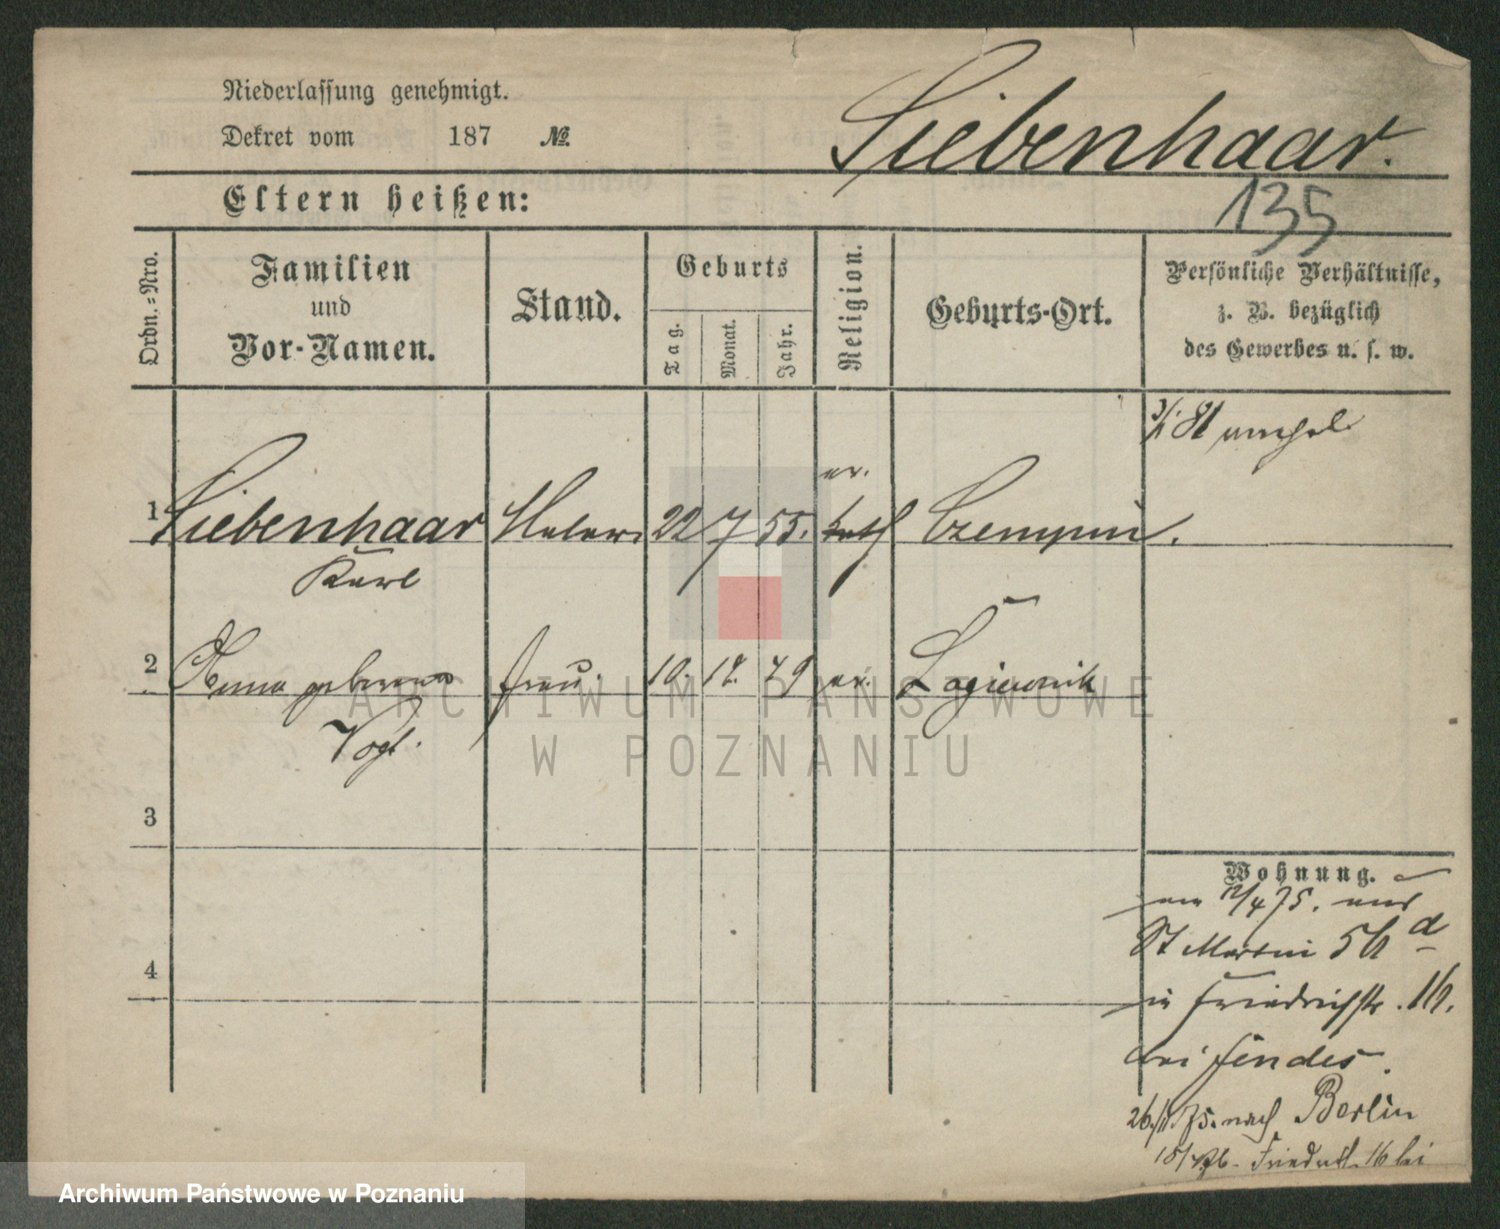 Niederlassung genehmigt.
Dekret vom 187 №
Siebenhaar.
135
Eltern heißen:
Ordn.-Nro.
Familien
und
Vor-Namen.
Stand.
Geburts
Tag.
Monat.
Jahr.
Religion.
Geburts-Ort.
Persönliche Verhältnisse,
z. B. bezüglich
des Gewerbes u. s. w.
ev.
1 Siebenhaar Maler 22 7 55. kath Czempin.
Karl
2 Anna geborene Frau. 10. 12. 79 ev.
Vogt.
3
4
Wohnung.
12/4 75. aus
St Martin 56
in Friedrichstr. 16.
bei
26. 75. nach Berlin
16 bei
ARCHIWUM PAŃSTWOWE
W POZNANIU
Archiwum Państwowe w Poznaniu